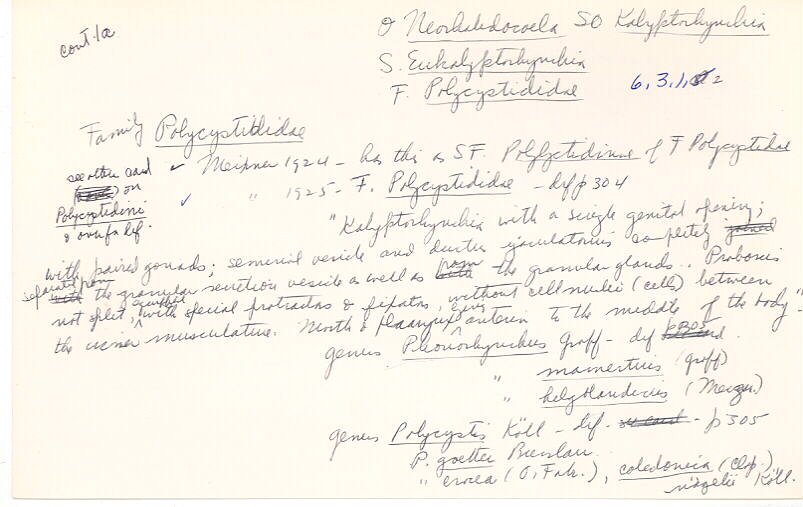 cont. 1a
O Neorhabdocoela SO Kalyptorhynchia
S. Eukalyptorhynchia
F. Polycystididae
6, 3, 1, 2
Family Polycystididae
see other card on Polycystidini & over for def.
✓ Meixner 1924 - has this as SF. Polycystidinae of F Polycystidae
✓ " 1925 - F. Polycystididae - def p 304
"Kalyptorhynchia with a single genital opening;
with paired gonads; seminal vesicle and ductus ejaculatorius completely joined
separate from with the granular secretion vesicle as well as from with the granular glands. Proboscis
not split, with special protractors & fixators, without cell nuclei (cells) between
the inner musculature. Mouth & pharynx lying anterior to the middle of the body" -
genus Phonorhynchus Graff - def p 305
" mamertinus (Graff)
" helgolandicus (Meczn.)
genus Polycystis Köll - def. see card - p 305
P. goettei Bresslau
" crocea (O. Fabr.), caledonica (Clap.)
nägelii Köll.